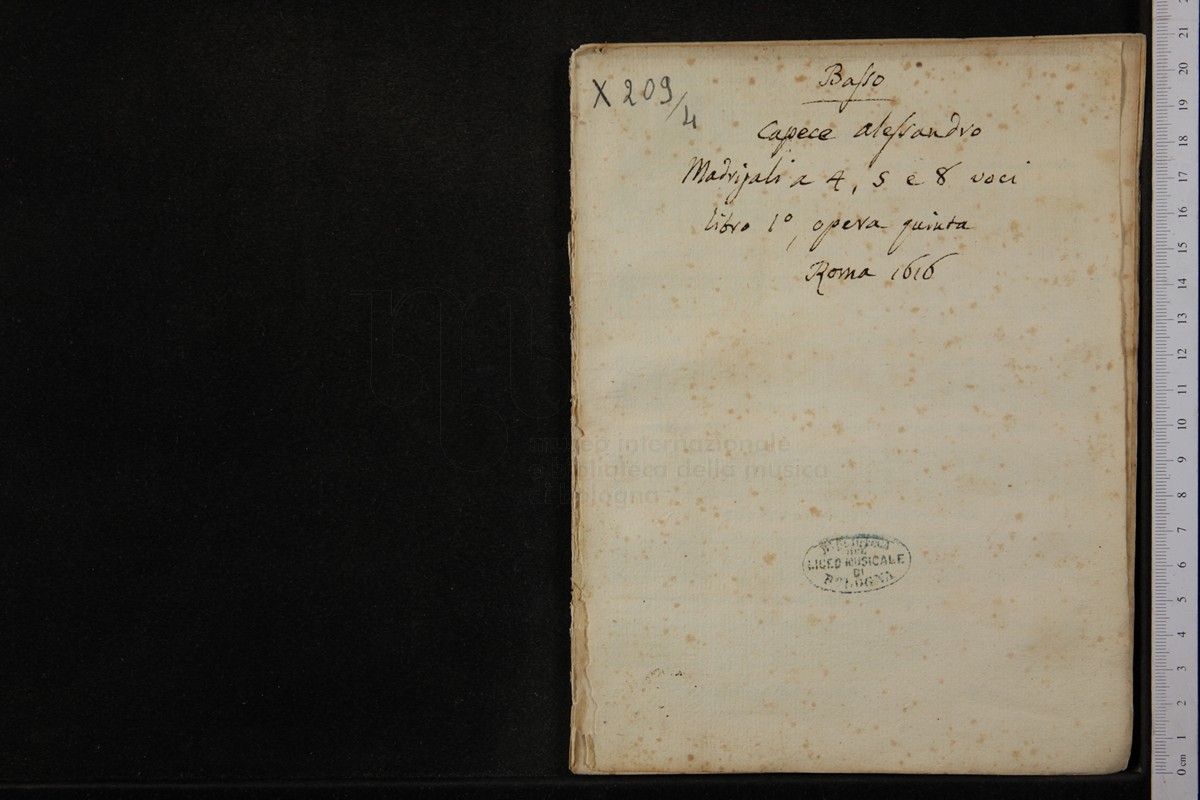 X 209/4
Basso
Capece Alessandro
Madrigali a 4, 5 e 8 voci
libro 1º, opera quinta
Roma 1616
museo internazionale
biblioteca della musica
bologna
BIBLIOTECA
DEL
LICEO MUSICALE
DI
BOLOGNA
21
20
19
18
17
16
15
14
13
12
11
10
9
8
7
6
5
4
3
2
1
0 cm